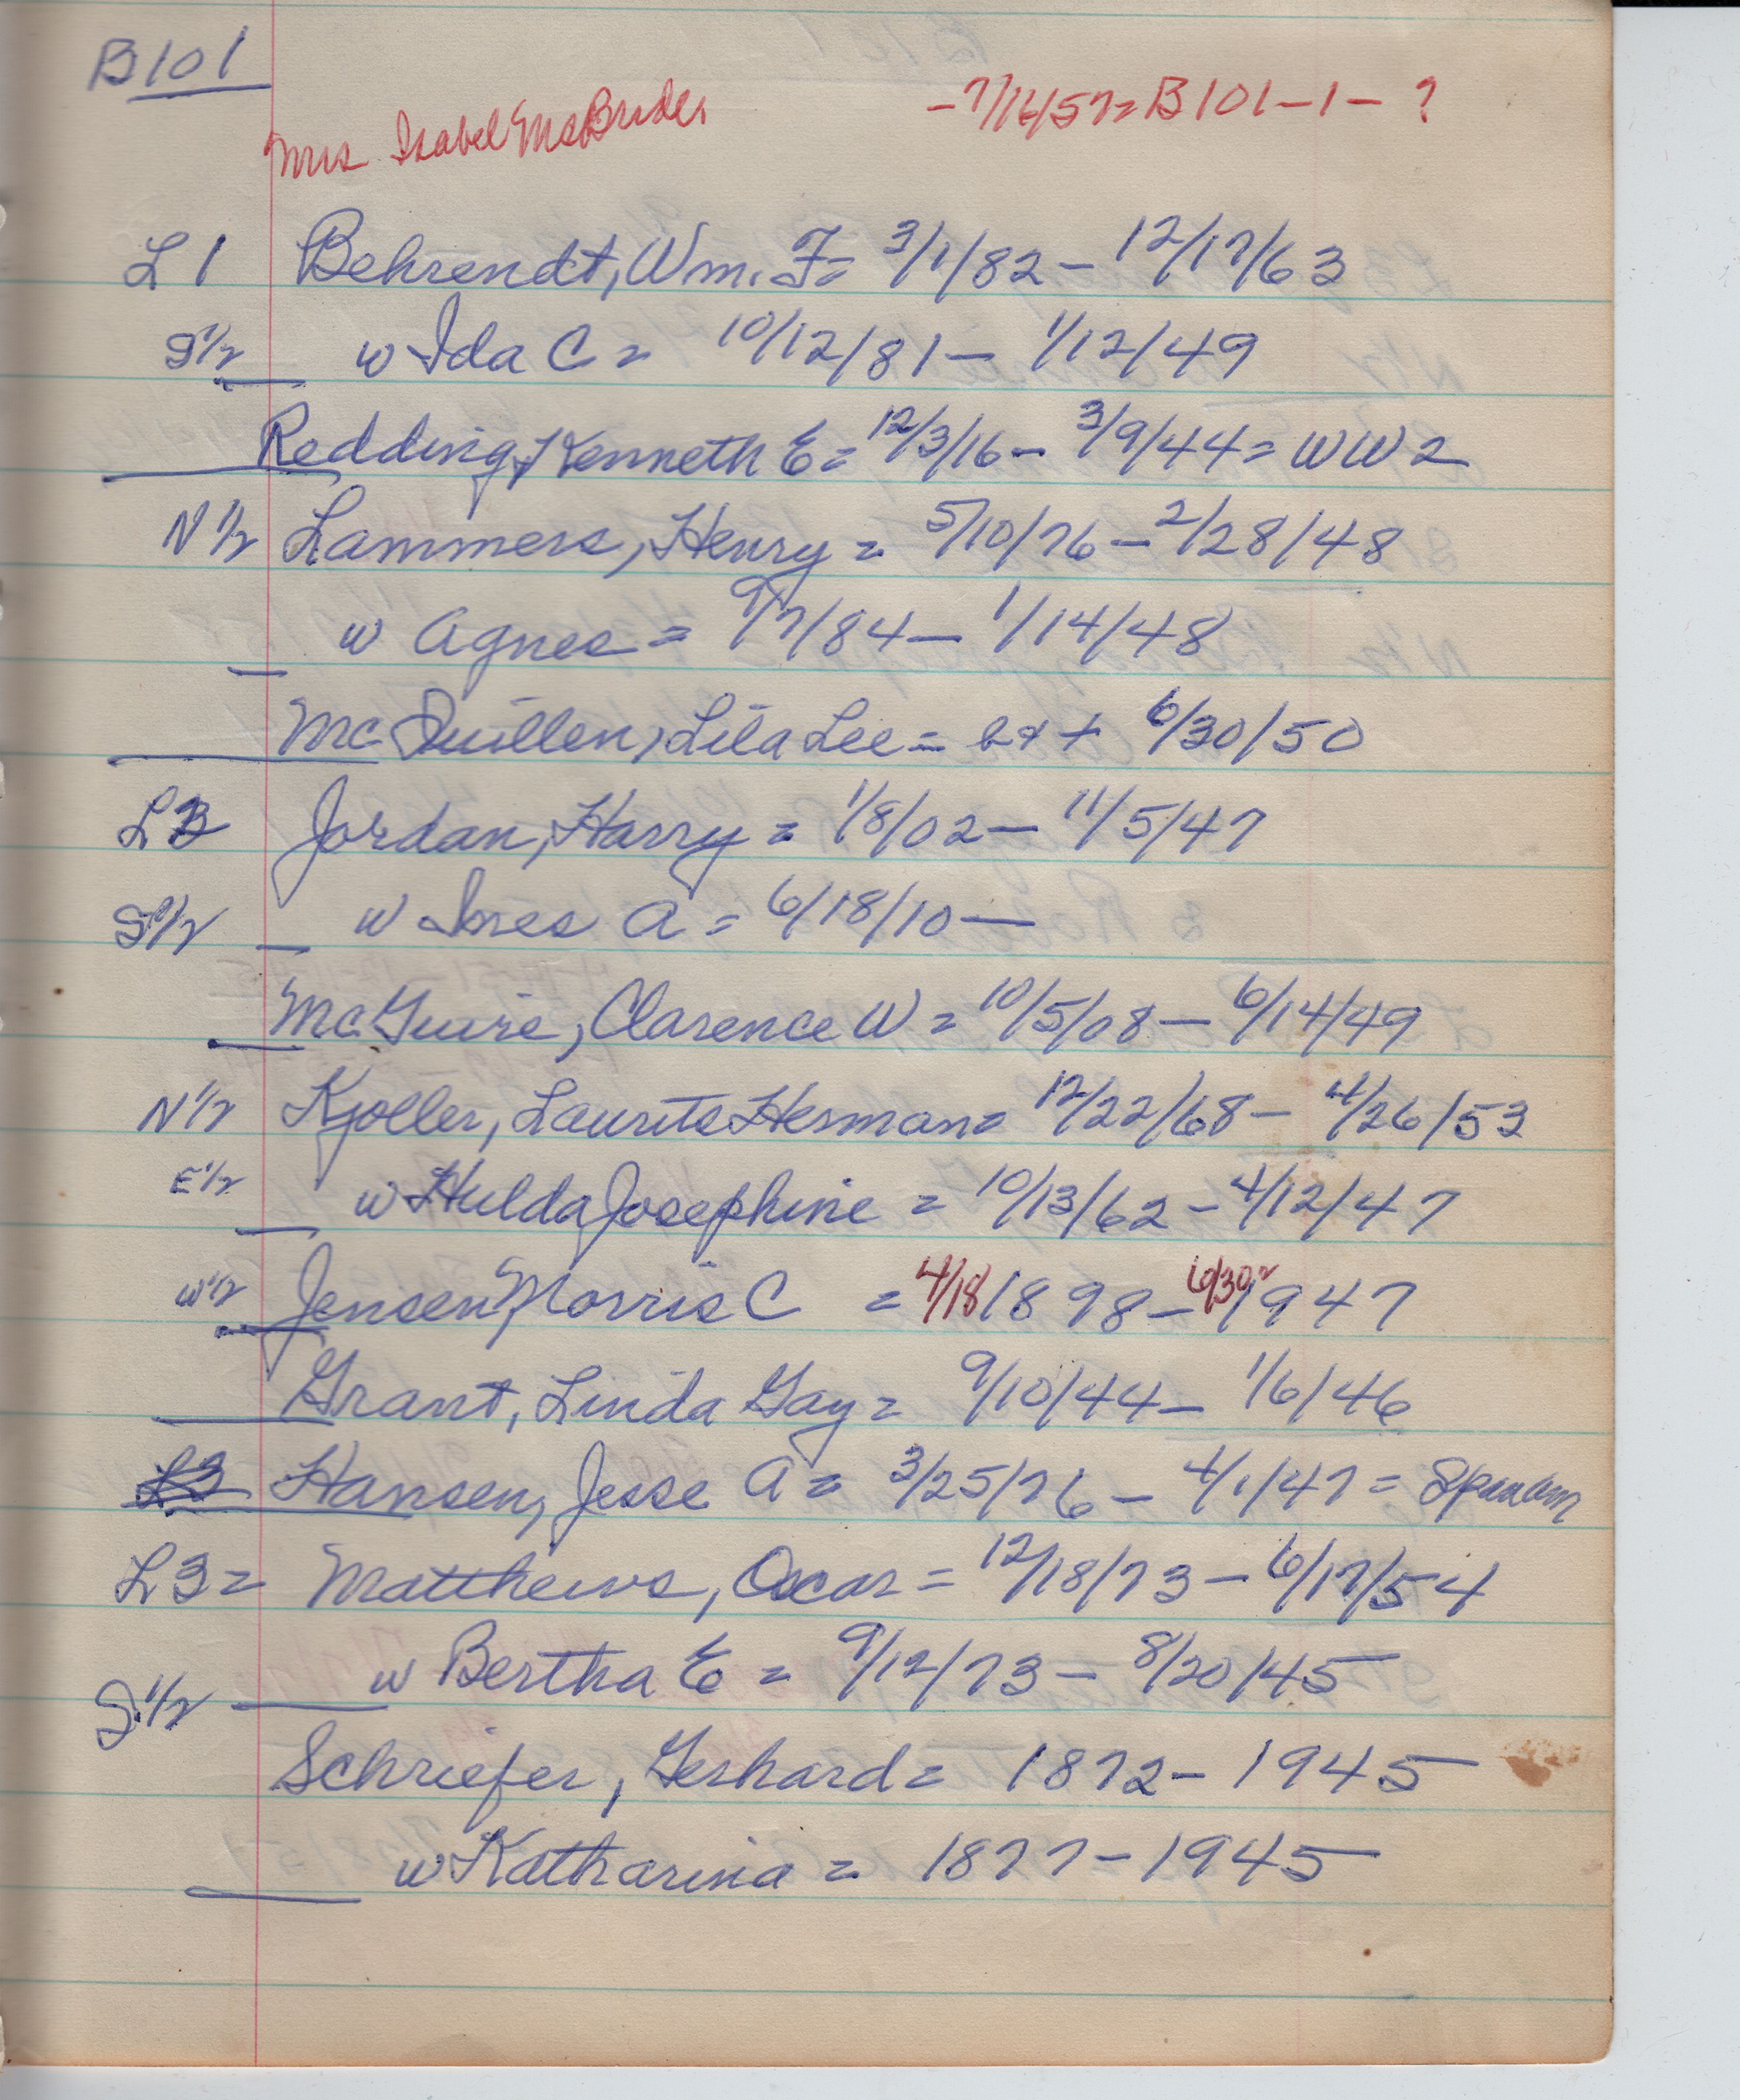 B101
Mrs Isabel McBride. - 7/16/57 = B101-1- ?
L 1 Behrendt, Wm. F = 3/1/82 - 12/17/63
S 1/2 w Ida C = 10/12/81 - 1/12/49
Redding, Kenneth E = 12/3/16 - 3/9/44 = WW2
N 1/2 Lammers, Henry = 5/10/76 - 2/28/48
w Agnes = 9/7/84 - 1/14/48
McQuillen, Lila Lee = b+ + 6/30/50
L2 Jordan, Harry = 1/8/02 - 11/5/47
S 1/2 w Ines A = 6/18/10 -
McGuire, Clarence W = 10/5/08 - 6/14/49
N 1/2 Kjoller, Laurits Herman = 12/22/68 - 4/26/53
E 1/2 w Hulda Josephine = 10/13/62 - 4/12/47
W 1/2 Jensen Morris C = 4/18 1898 - 6/30 1947
Grant, Linda Gay = 9/10/44 - 1/6/46
L3 Hansen, Jesse A = 3/25/76 - 4/1/47 = Span am
L3 = Matthews, Oscar = 12/18/73 - 6/17/54
w Bertha E = 9/12/73 - 8/20/45
S 1/2
Schriefer, Gerhard = 1872 - 1945
w Katharina = 1877 - 1945